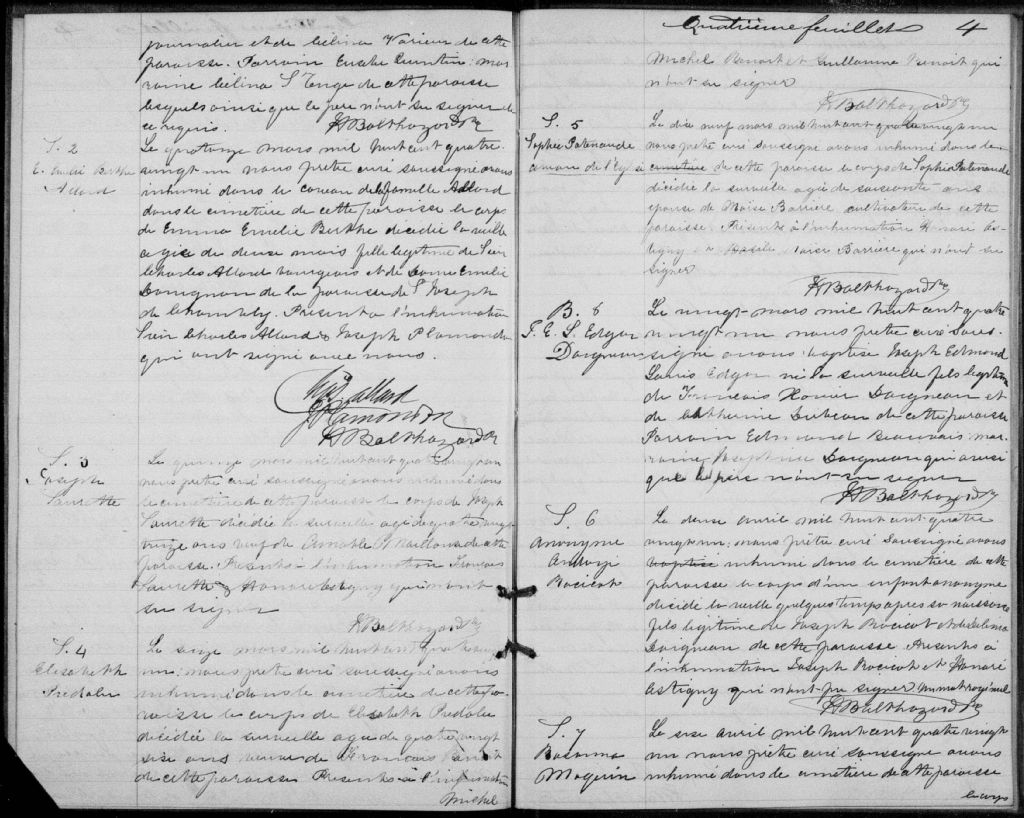 journalier et de Célina Varieur de cette
paroisse. Parrain Eusèbe Quintin: mar
raine Célina St Onge de cette paroisse
lesquels ainsi que le père n'ont su signer de
ce requis.
JA Balthazard Ptre
S. 2
E. Emélie Berthe
Allard
Le quatorze mars mil huit cent quatre-
vingt un nous prêtre curé soussigné avons
inhumé dans le caveau de la famille Allard
dans le cimetière de cette paroisse le corps
de Emma Emélie Berthe décédée la veille
agée de deux mois fille legitime de Sieur
Charles Allard bourgeois et de Dame Emélie
Davignon de la paroisse de St Joseph
de Chambly. Présents à l'inhumation
Sieur Charles Allard & Joseph Plamondon
qui ont signé avec nous.
Chs Allard
J Plamondon
JA Balthazard Ptre
S. 3
Joseph
Paurette
Le quinze mars mil huit cent quatre vingt un
nous prêtre curé soussigné avons inhumé dans
le cimetière de cette paroisse le corps de Joseph
Paurette décédé la surveille agé de quatre vingt
treize ans veuf de Amable de cette
paroisse. Présents à l'inhumation François
Paurette & Honoré Astigny qui n'ont
su signer
JA Balthazard Ptre
S. 4
Elisabeth
Predalu
Le seize mars mil huit cent quatre vingt
un: nous prêtre curé soussigné avons
inhumé dans le cimetière de cette pa-
roisse le corps de Elisabeth Predalu
décédée la surveille agée de quatre vingt
seize ans veuve de François Benoit
de cette paroisse Présents à l'inhumation
Michel
Quatrième feuillet 4
Michel Benoit et Guillaume Benoit qui
n'ont su signer
JA Balthazard Ptre
S. 5
Sophie Patenaude
caveau de l'Eglise
Le dix neuf mars mil huit cent quatre vingt un
nous prêtre curé soussigné avons inhumé dans le
cimetière de cette paroisse le corps de Sophie Patenaude
décédée la surveille agée de soixante ans
épouse de Moïse Barrière cultivateur de cette
paroisse. Présents à l'inhumation Honoré As-
tigny & Basile Barrière qui n'ont su
signer
JA Balthazard Ptre
B. 8
J. E. L. Edgar
Daigneau
Le vingt mars mil huit cent quatre
vingt un nous prêtre curé sous-
signé avons baptisé Joseph Edmond
Louis Edgar né la surveille fils légitime
de François Daigneau et
de Catherine Dubeau de cette paroisse
Parrain Edmond Beauvais mar-
raine Josephine Daigneau qui ainsi
que le père n'ont su signer
JA Balthazard Ptre
S. 6
Anonyme
Racicot
Le deux avril mil huit cent quatre
vingt un: nous prêtre curé soussigné avons
baptisé inhumé dans le cimetière de cette
paroisse le corps d'un enfant anonyme
décédé la veille quelques temps après sa naissance
fils legitime de Joseph Racicot et de
Daigneau de cette paroisse. Présents à
l'inhumation Joseph Racicot et Honoré
Astigny qui n'ont pu signer un mot rayé nul
JA Balthazard Ptre
S. 7
Rosanna
Moquin
Le six avril mil huit cent quatre vingt
un nous prêtre curé soussigné avons
inhumé dans le cimetière de cette paroisse
le corps